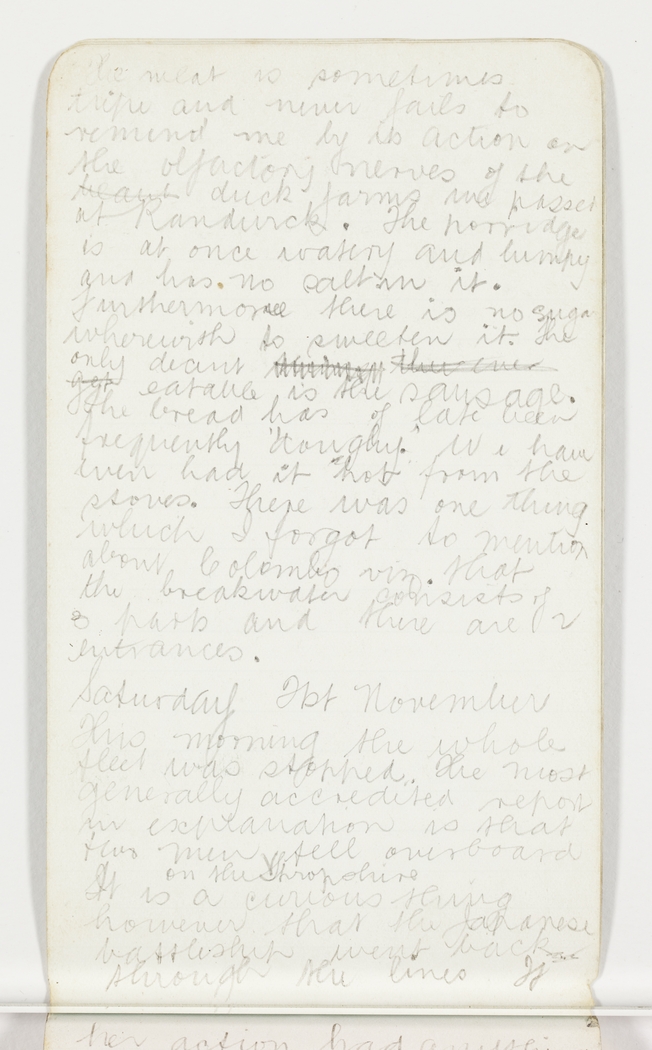 The meat is sometimes
tripe and never fails to
remind me by its action on
the olfactory nerves of the
duck farms we passed
at Randwick. The porridge
is at once watery and lumpy
and has no salt in it.
Furthermore there is no sugar
wherewith to sweeten it. The
only decent
eatable is the sausage.
The bread has of late been
frequently 'doughy.' We have
even had it "hot" from the
stoves. There was one thing
which I forgot to mention
about Colombo viz. that
the breakwater consists of
3 parts and there are 2
entrances.
Saturday 21st November
This morning the whole
fleet was stopped. The most
generally accredited report
in explanation is that
two men fell overboard
on the Shropshire
It is a curious thing
however that the Japanese
battleship went back
through the lines If
her action had